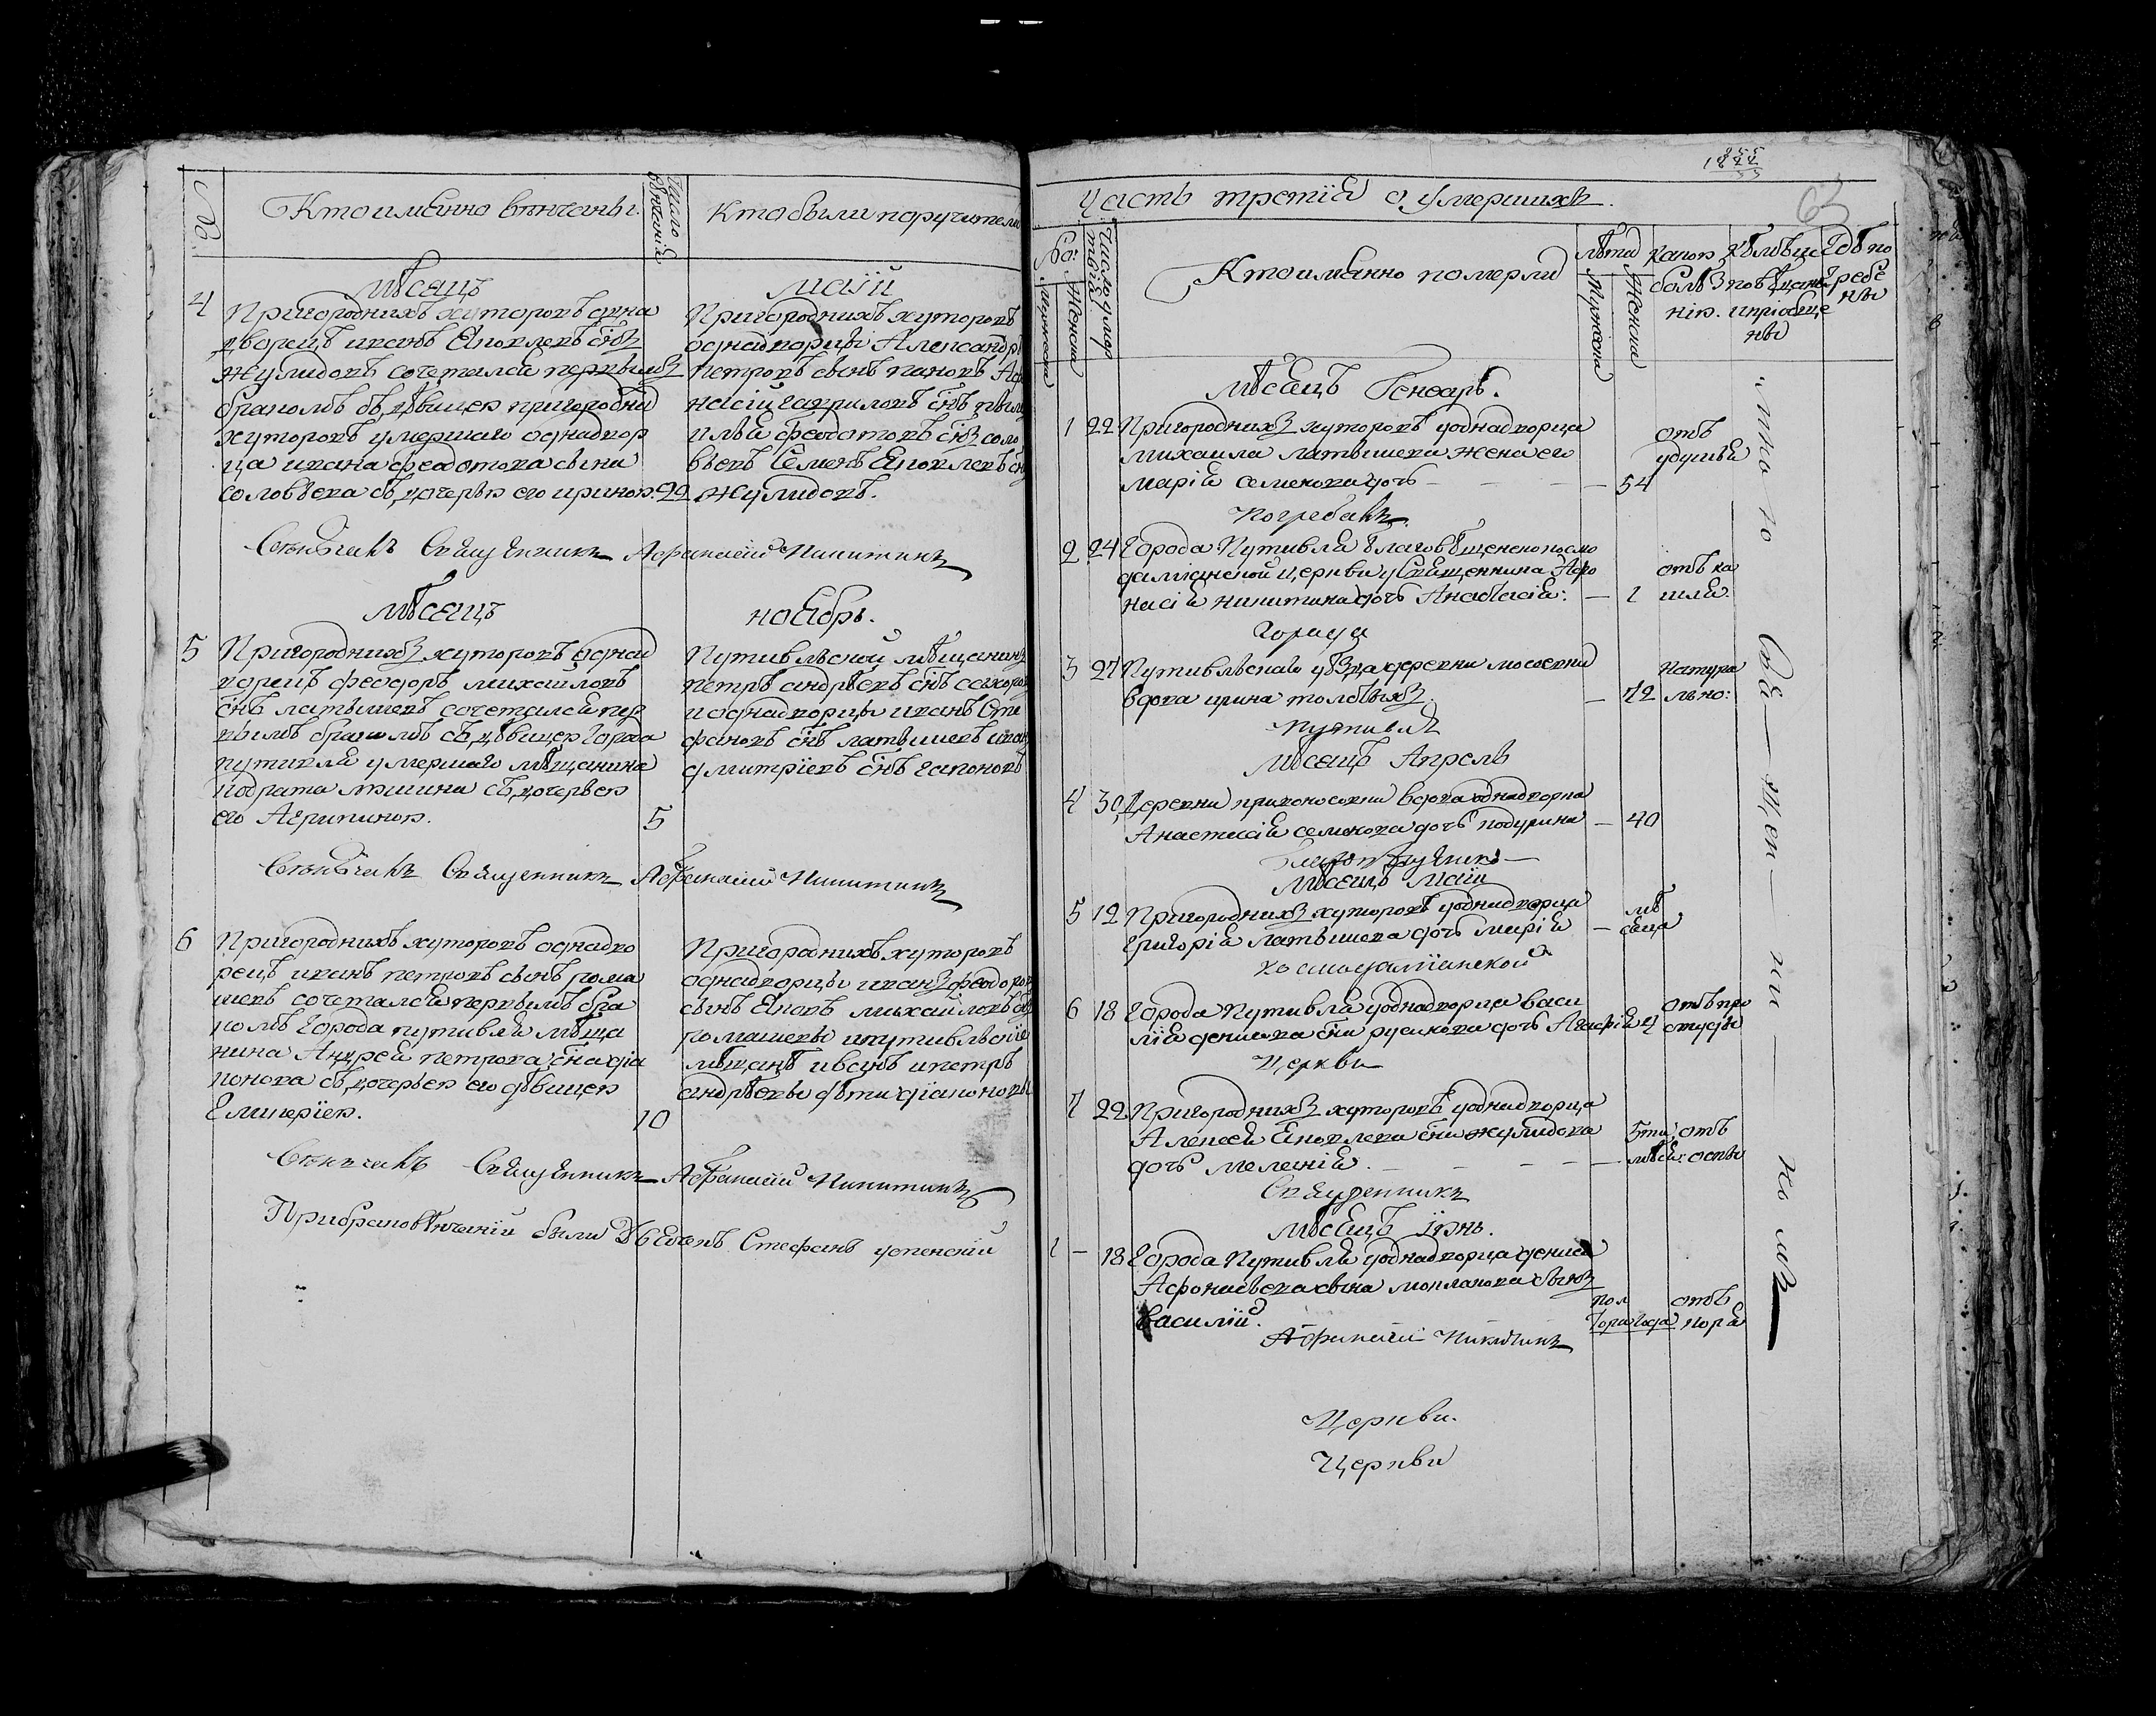 №.
Кто имянно венчаны.
Число венчанiя
Кто были поручители
мѣсецъ
маiй
4
Пригороднихъ хуторовъ одна
дворецъ иванъ Яковлевъ сн҃ъ
жулидовъ сочетался первымъ
бракомъ съ дѣвицею пригородни
хуторовъ умершаго однадвор
ца ивана феодотова сына
соловьева съ дочерью его ириною.
22
Пригороднихъ хуторовъ
однадворцы Александръ
петровъ сынъ пановъ Афа
насiй гавриловъ сн҃ъ
илья феодотовъ сн҃ъ соло
вьевъ Семенъ Яковлевъ сн҃ъ
жулидовъ.
Священникъ Афанасiй Никитинъ
мѣсецъ
ноябрь.
5
Пригороднихъ хуторовъ однад
ворецъ феодоръ михаиловъ
сн҃ъ латышевъ сочетался пер
вымъ бракомъ съ дѣвицею города
путивля умершаго мѣщанина
кодрата мишина съ дочерью
его Агрипиною.
5
Путивльской мѣщанинъ
петръ андрѣевъ сн҃ъ сахоров
и однадворцы иванъ Сте
фановъ сн҃ъ латышевъ иван
дмитрiевъ сн҃ъ гапоновъ
Священникъ Афанасiй Никитинъ
6
Пригороднихъ хуторовъ однадво
рецъ иванъ петровъ сынъ рома
шевъ сочетался первымъ бра
комъ города путивля мѣща
нина Андрея петрова сн҃а дiа
конова съ дочерью его дѣвицею
Гликерiею.
10
Пригороднихъ хуторовъ
однадворцы иванъ феодоров
сынъ Яковъ михайловъ сн҃ъ
ромашевы ипутивльскiе
мѣщанѣ иванъ ипетръ
андрѣевы дѣти дiаконовы
Священникъ Афанасiй Никитинъ
При браковѣнчанiи былъ дьячекъ Стефанъ успенскiй
63
Часть третiя о умершихъ.
№.
Мужеска
Женска
Число умертвiя
Кто имянно померли
лѣта
Мужеска
Женска
Какою
болѣз
нiю.
Кѣмъ ис
повѣданы
и прiобще
ны
Гдѣ по
гребе
ны
мѣсяцъ Генварь.
1
22
Пригороднихъ хуторовъ уоднадворца
михаила латышева жена его
марiя семенова дочь
54
отъ
удушья
Погребалъ
2
24
Города Путивля благовѣщенскокосмо
дамiанской церкви уСвященника Афо
насiя никитина дочь Анастасiя:
1
отъ ка
шля.
города
3
27
Путивльскаго уѣзда деревни мосоевки
вдова ирина толбына.
72
натура
льно:
путивля
мѣсяцъ Апрель
4
30
Деревни приконосовки вдова однадворка
Анастасiя семенова дочь подурина
40
мѣсяцъ маiй
5
12
Пригороднихъ хуторовъ уоднадворца
григорiя латышева дочь марiя
мѣ
сяца
космодамiанской
6
18
Города Путивля уоднадворца васи
лiя денисова сн҃а русинова дочь Агафiя
4
отъ про
студы
Церкви
7
22
Пригороднихъ хуторовъ уоднадворца
Алексѣя Яковлева сн҃а жулидова
дочь меланiя.
5ти
мѣся:
отъ
оспы
Священникъ
мѣсяцъ Iюнь.
1
18
Города Путивля уоднадворца дениса
Афонасьева сына моклакова сынъ
василiй.
пол
тора года
отъ
коря
Афанасiй Никитинъ
Церкви.
Церкви